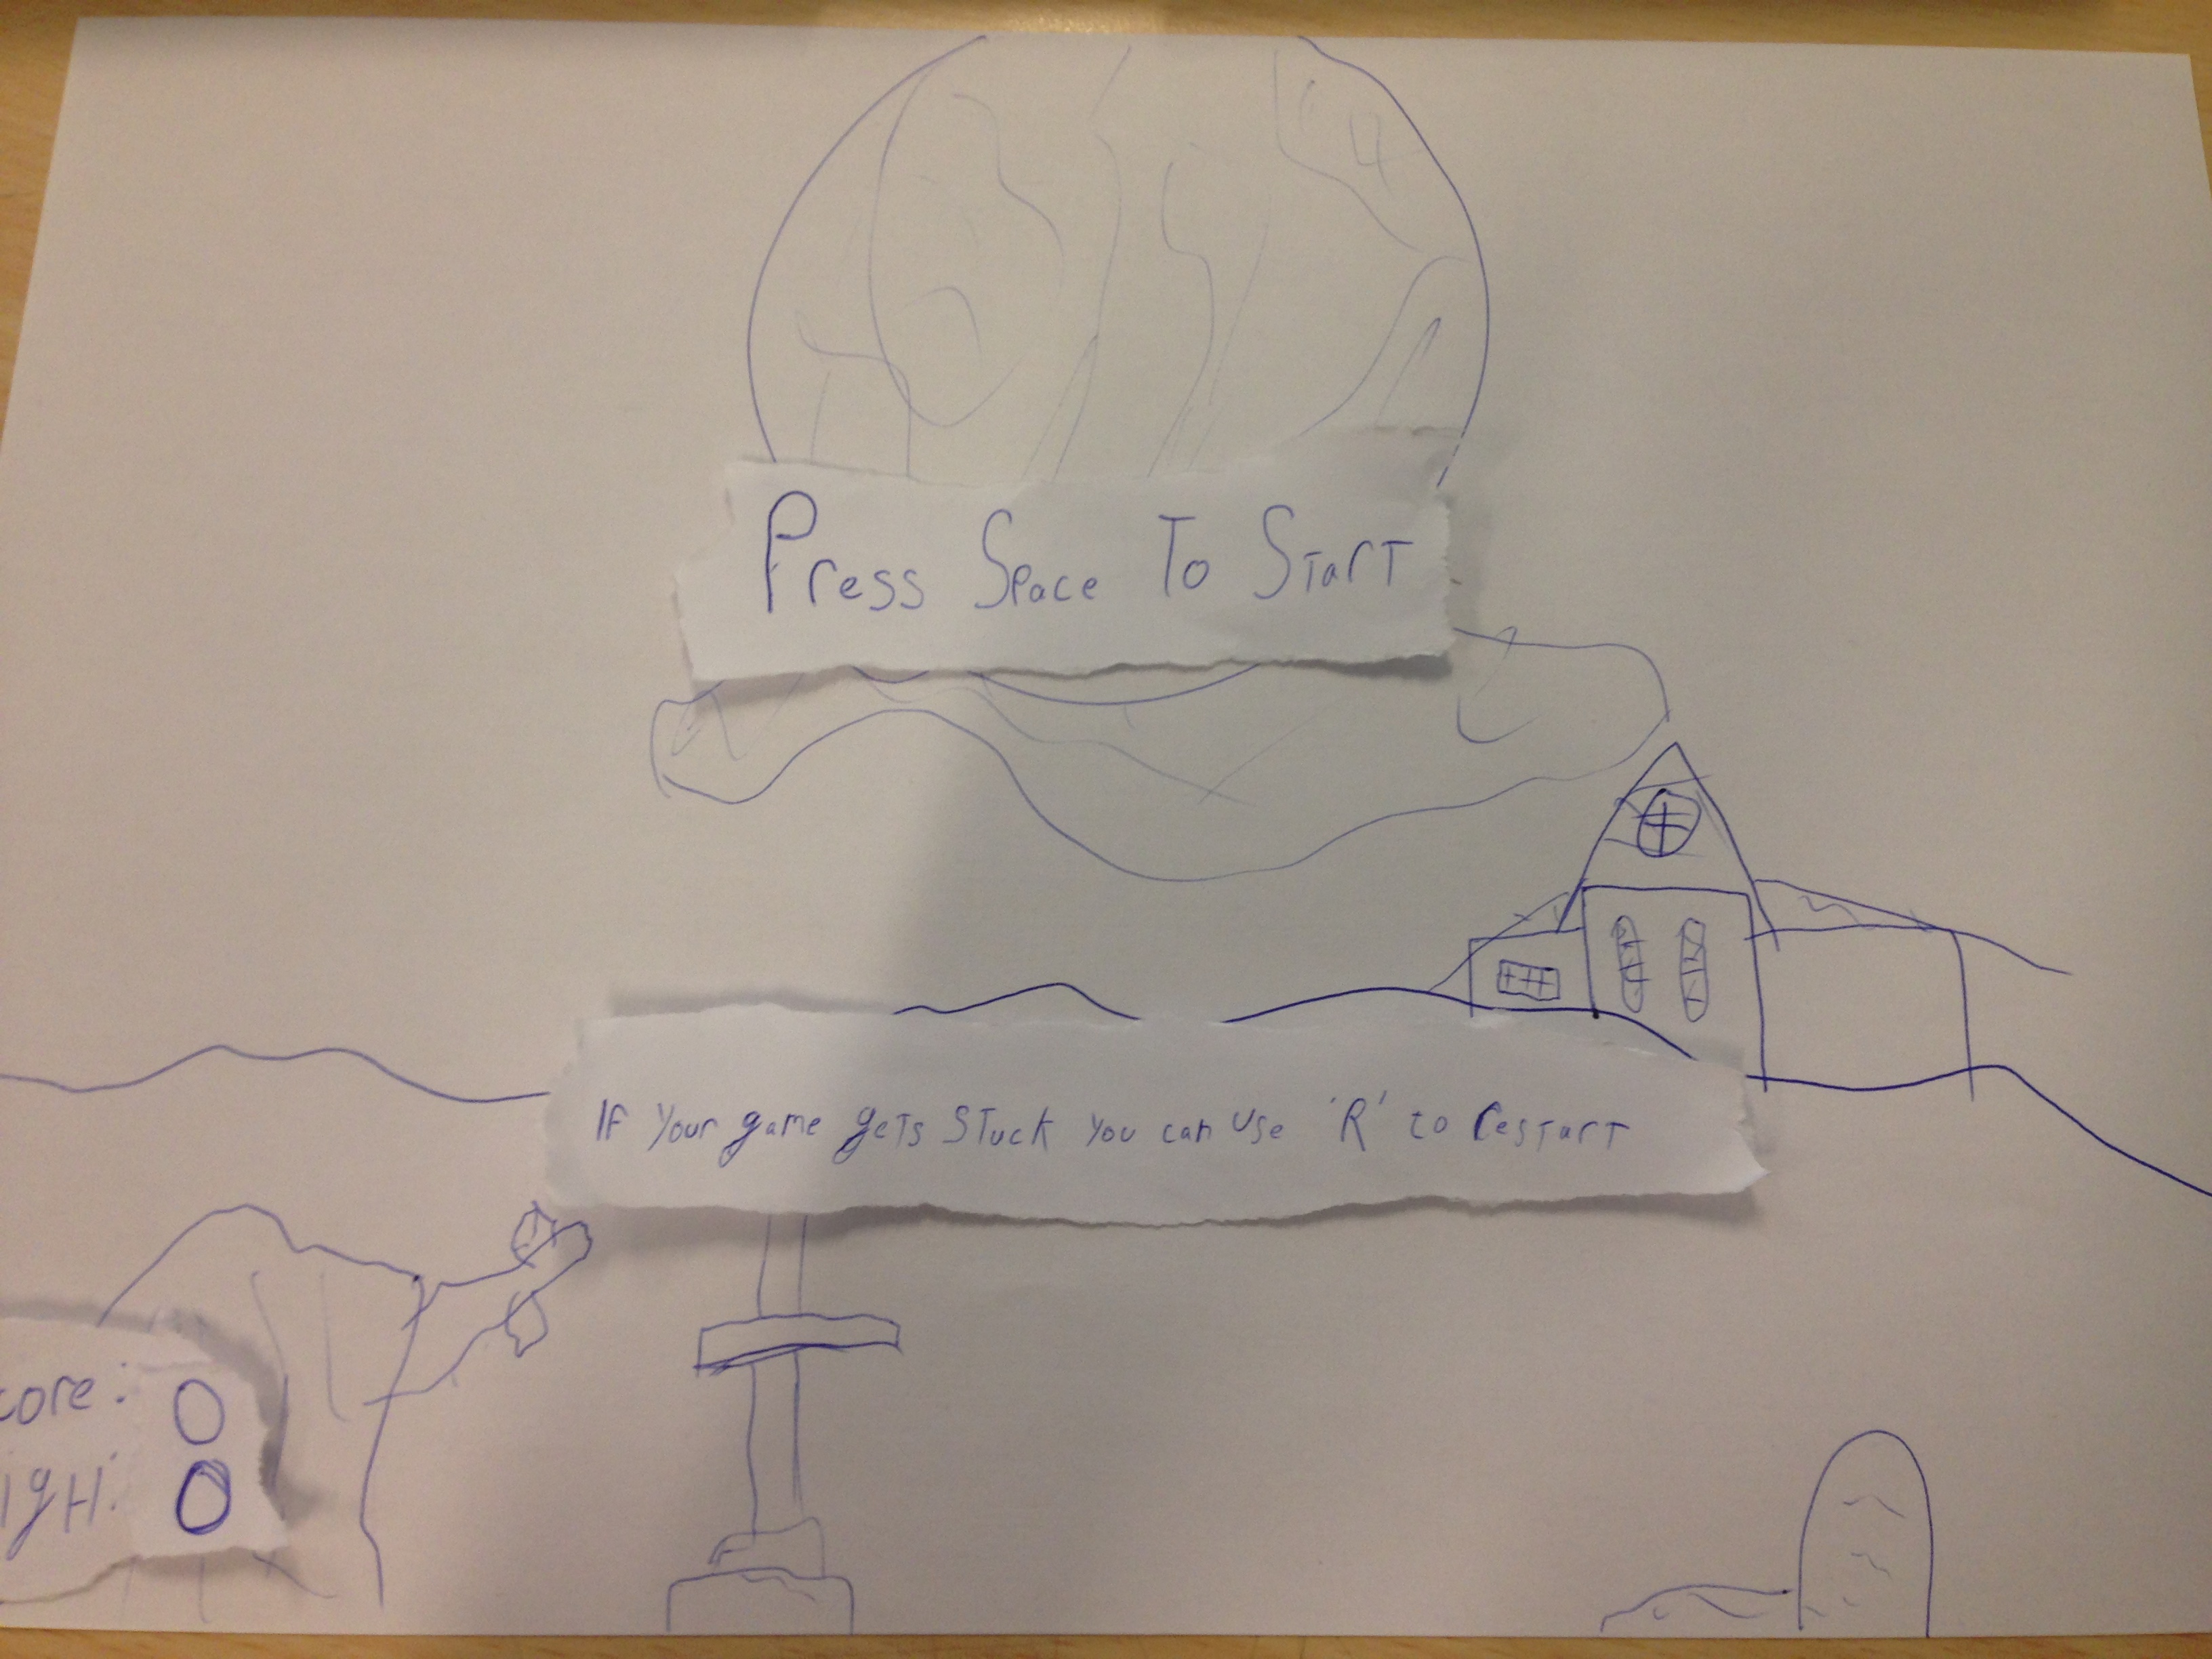 Press Space To Start
IF Your game gets Stuck You can use 'R' to restart
core: 0
igH: 0